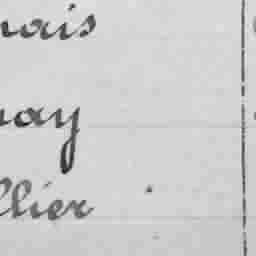 nais
nay
llier